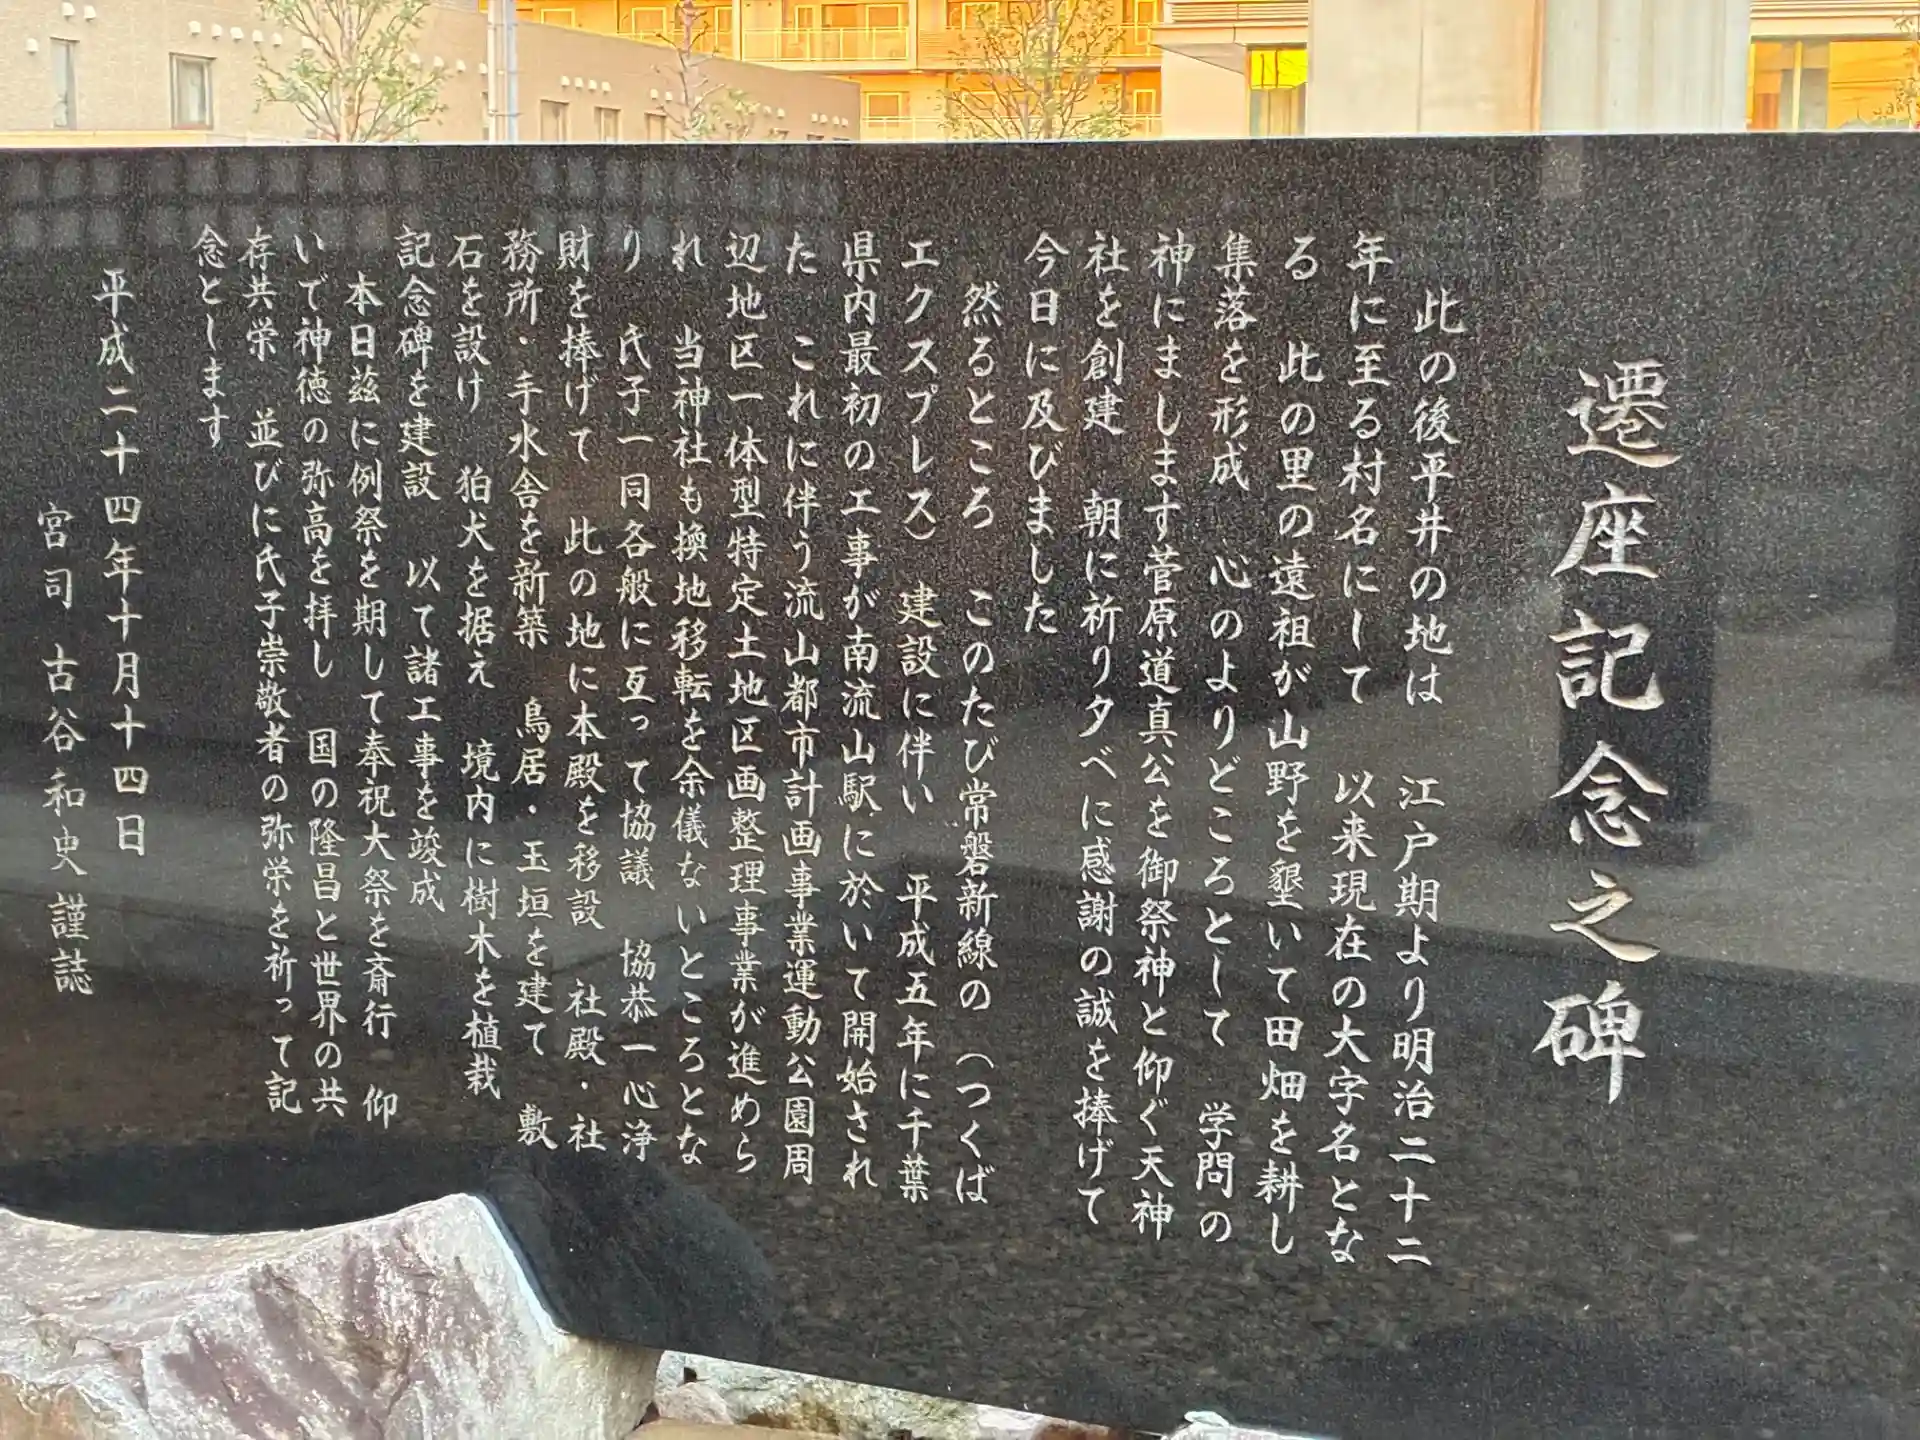 遷座記念之碑
此の後平井の地は　江戸期より明治二十二
年に至る村名にして　以来現在の大字名とな
る　此の里の遠祖が山野を墾いて田畑を耕し
集落を形成　心のよりどころとして　学問の
神にまします菅原道真公を御祭神と仰ぐ天神
社を創建　朝に祈り夕べに感謝の誠を捧げて
今日に及びました
然るところ　このたび常磐新線の（つくば
エクスプレス）　建設に伴い　平成五年に千葉
県内最初の工事が南流山駅に於いて開始され
た　これに伴う流山都市計画事業運動公園周
辺地区一体型特定土地区画整理事業が進めら
れ　当神社も換地移転を余儀ないところとな
り　氏子一同各般に亙って協議　協恭一心浄
財を捧げて　此の地に本殿を移設　社殿・社
務所・手水舎を新築　鳥居・玉垣を建て　敷
石を設け　狛犬を据え　境内に樹木を植栽
記念碑を建設　以て諸工事を竣成
本日茲に例祭を期して奉祝大祭を斎行　仰
いで神徳の弥高を拝し　国の隆昌と世界の共
存共栄　並びに氏子崇敬者の弥栄を祈って記
念とします
平成二十四年十月十四日
宮司　古谷和史　謹誌